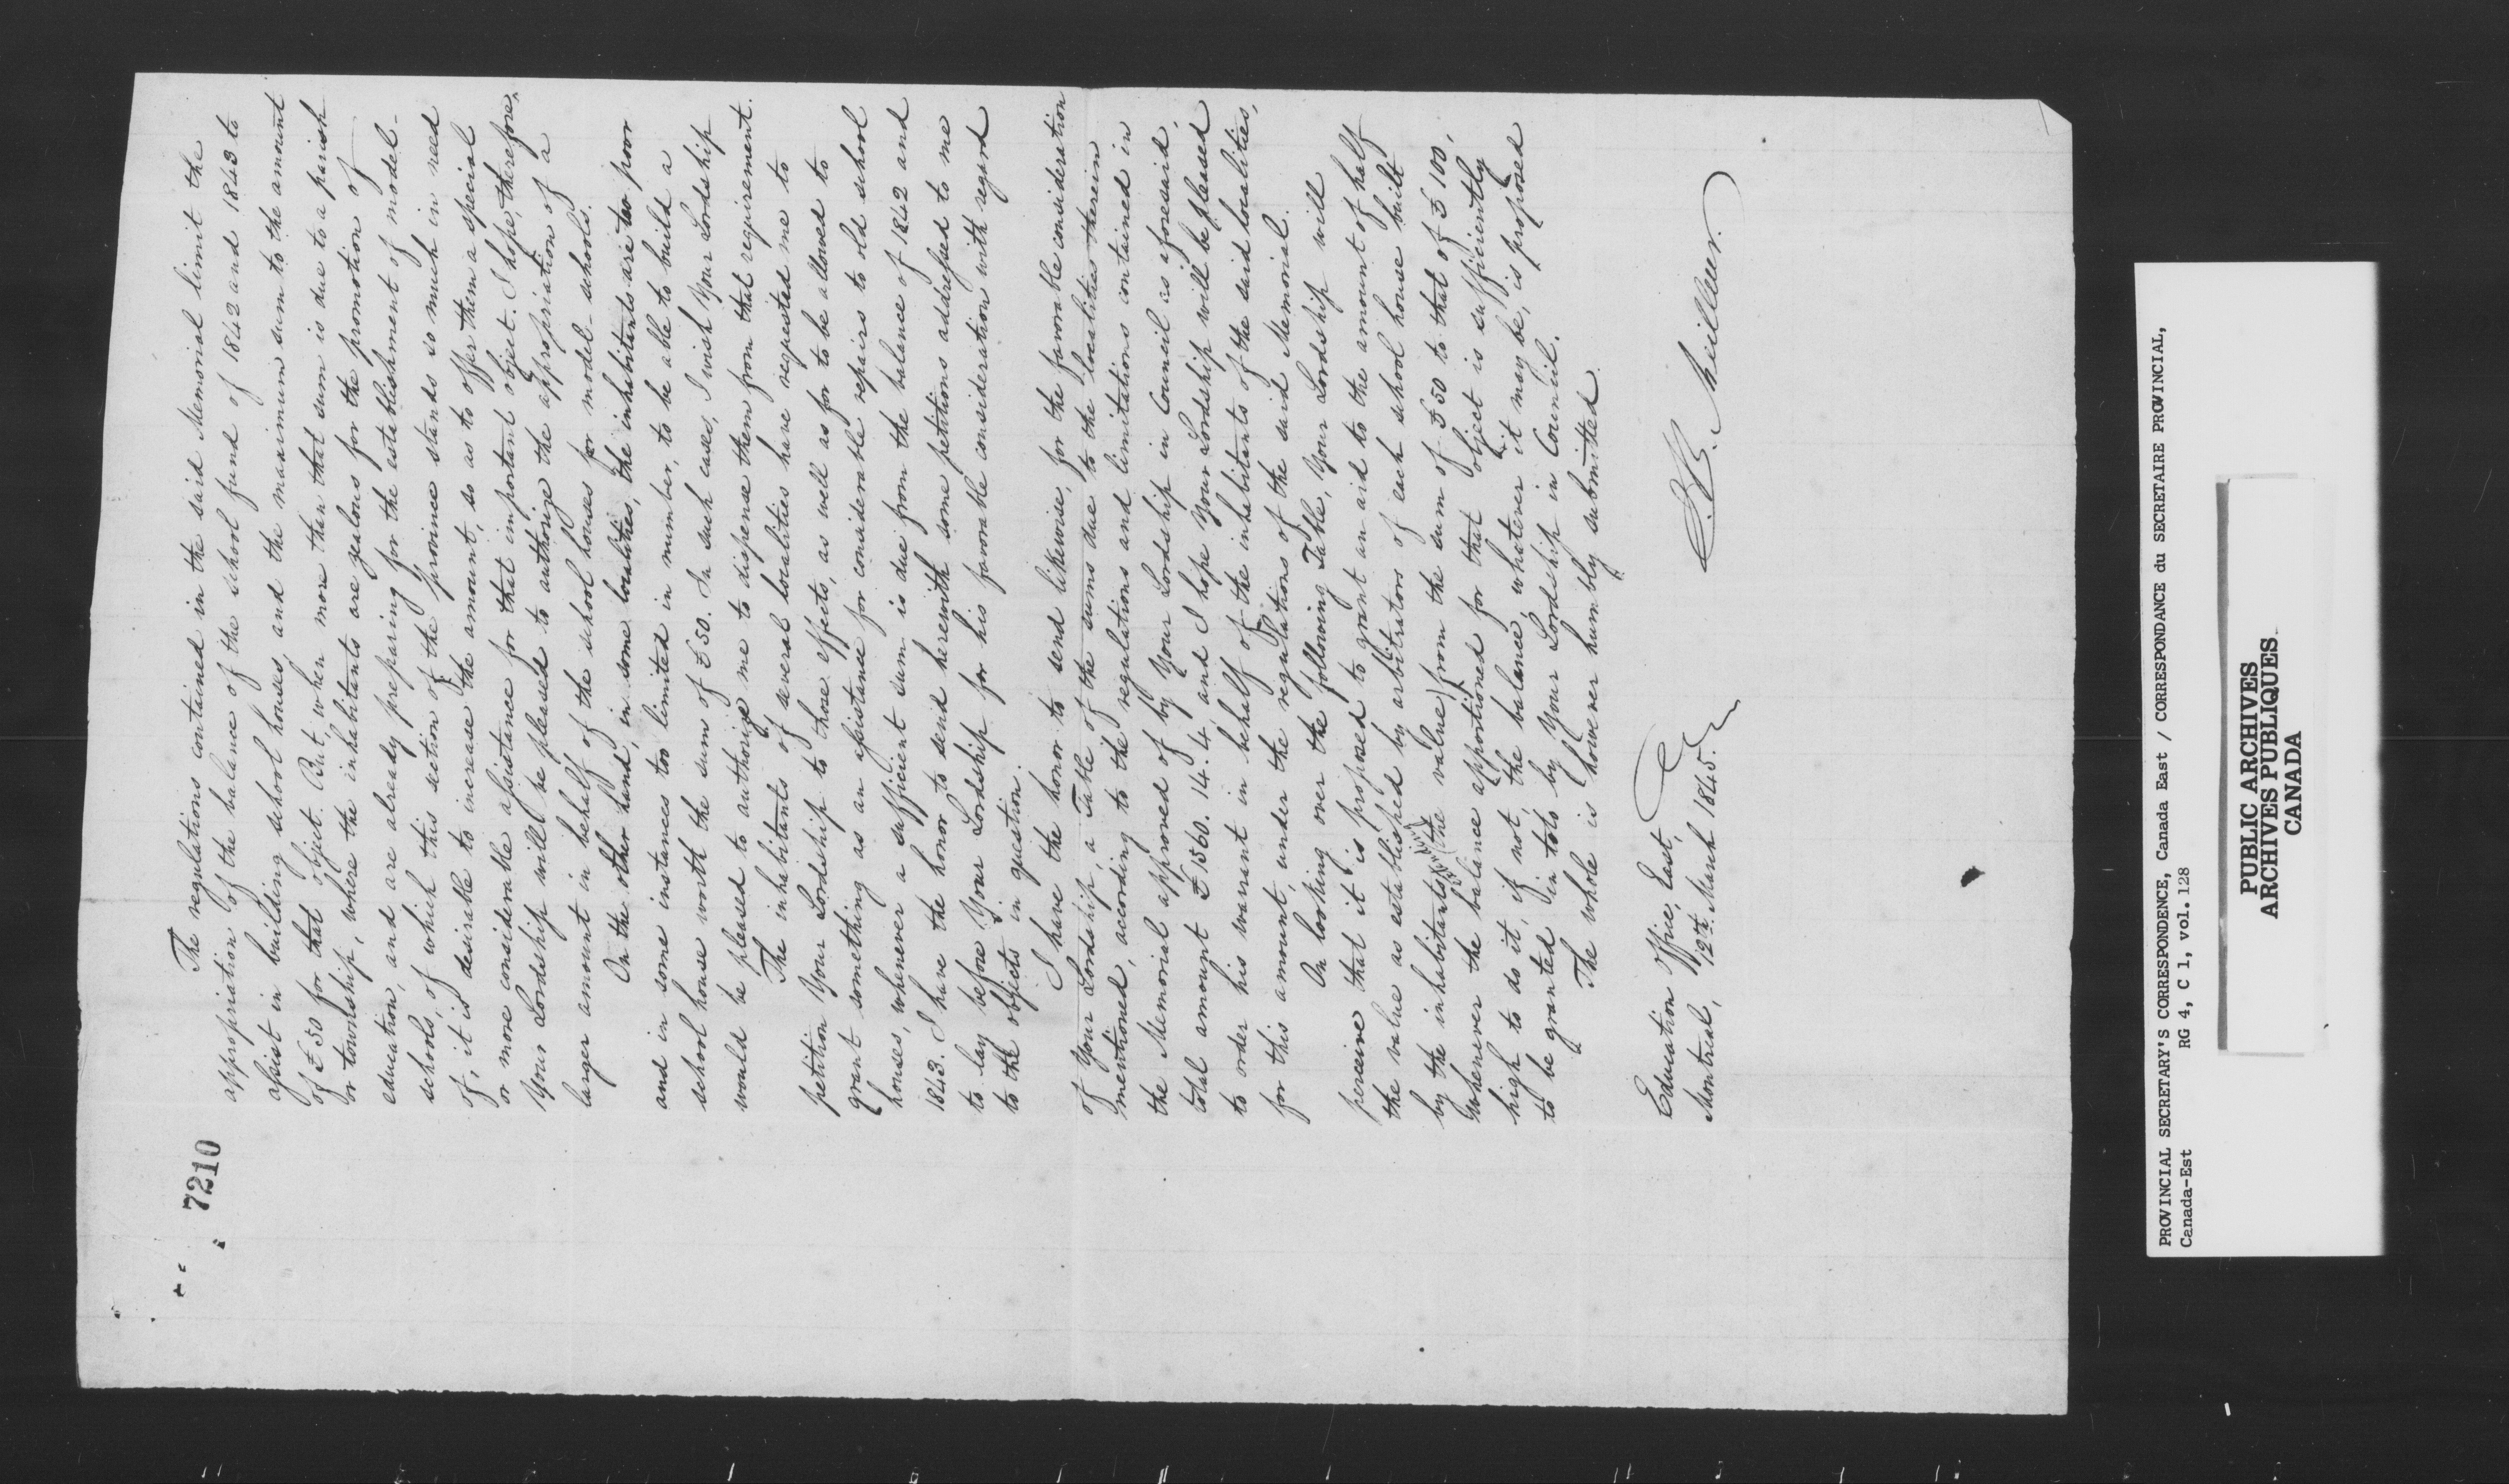 7210
The regulations contained in the said Memorial limit the
appropriation of the balance of the school fund of 1842 and 1843 to
assist in building school houses, and the maximum sum to the amount
of £50 for that object. But, when more than that sum is due to a parish
or township, where the inhabitants are zealous for the promotion of
education, and are already preparing for the establishment of model-
schools, of which this section of the Province stands so much in need
of, it is desirable to increase the amount, so as to offer them a special
or more considerable assistance for that important object. I hope, therefore,
Your Lordship will be pleased to authorize the appropriation of a
larger amount in behalf of the school houses for model-schools.
On the other hand, in some localities, the inhabitants are too poor
and in some instances too limited in number, to be able to build a
school house worth the sum of £50. In such cases, I wish Your Lordship
would be pleased to authorize me to dispense them from that requirement.
The inhabitants of several localities have requested me to
petition Your Lordship to those effects, as well as for to be allowed to
grant something as an assistance for considerable repairs to old school
houses, whenever a sufficient sum is due from the balance of 1842 and
1843. I have the honor to send herewith some petitions addressed to me
to lay before Your Lordship for his favorable consideration with regard
to the objects in question.
I have the honor to send likewise, for the favorable consideration
of Your Lordship, a Table of the sums due to the localities therein
mentioned, according to the regulations and limitations contained in
the Memorial approved of by Your Lordship in Council as aforesaid,
total amount £1560. 14. 4, and I hope Your Lordship will be pleased
to order his warrant in behalf of the inhabitants of the said localities,
for this amount, under the regulations of the said Memorial.
On looking over the following Table, Your Lordship will
perceive that it is proposed to grant an aid to the amount of half
the value as established by arbitrators of each school house built
by the inhabitants (the value) from the sum of £50 to that of £100,
whenever the balance apportioned for that object is sufficiently
high to do it, if not, the balance, whatever it may be, is proposed
to be granted in toto by Your Lordship in Council.
The whole is however humbly submitted.
J. B. Meilleur.
Education Office, East,
Montreal, 12th March 1845.
PROVINCIAL SECRETARY'S CORRESPONDENCE, Canada East / CORRESPONDANCE du SECRETAIRE PROVINCIAL,
Canada-Est RG 4, C 1, vol. 128
PUBLIC ARCHIVES
ARCHIVES PUBLIQUES
CANADA